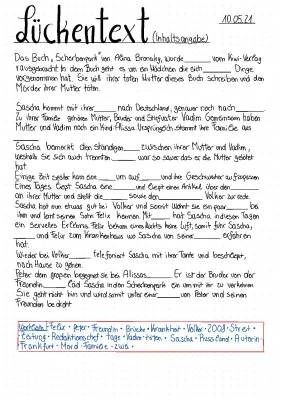 Lückentext (Inhaltsangabe) 10.05.21
Das Buch „Scherbenpark" von Alina Bronsky, wurde _____ vom Kiwi-Verlag
rausgebracht. In dem Buch geht es um ein Mädchen die sich _____ Dinge
vorgenommen hat. Sie will ihrer toten Mutter dieses Buch schreiben und den
Mörder ihrer Mutter töten.
Sascha kommt mit ihrer _____ nach Deutschland, genauer noch nach _____
Zu ihrer Familie gehören Mutter, Bruder und Stiefvater Vadim. Gemeinsam haben
Mutter und Vadim noch ein Kind Alissa. Ursprünglich stammt ihre Familie aus
_____
Sascha bemerkt den ständigen _____ zwischen ihrer Mutter und Vadim,
weshalb sie sich auch freundin _____ war so sauer das er die Mutter getötet
hat.
Einige Zeit später kam eine _____ um auf _____ und ihre Geschwister aufzupassen.
Eines Tages liest Sascha eine _____ und liest einen Artikel über den _____
an ihrer Mutter und stellt die _____ sowie den _____ Volker zur rede.
Sascha hat eine etwas gut bei Volker und somit wohnt sie ein paar _____ bei
ihm und lernt seinen Sohn Felix kennen. Mit _____ hat Sascha in diesen Tagen
ein sexuelles Erlebnis. Felix bekam eines Nachts keine Luft, somit fuhr Sascha,
_____ und Felix zum Krankenhaus wo Sascha von seiner _____ erfahren
hat.
Wieder bei Volker _____ telefoniert Sascha mit ihrer Tante und beschließt,
nach Hause zu gehen.
Peter dem großen begegnet sie bei Alissas _____. Er ist der Bruder von der
Freundin _____ lad Sascha in den Scherbenpark ein um mit ihr zu verkehren.
Sie geht nicht hin und wird somit unter einer _____ von Peter und seinen
Freunden bedroht
Wortkasten: Felix · Peter · Freundin · Brücke · Krankheit · Volker · 2008 · Streit ·
Zeitung · Redaktionschef · tage · Vadim · töten · Sascha · Russland · Autorin ·
Frankfurt · Mord · Familie · zwei ·